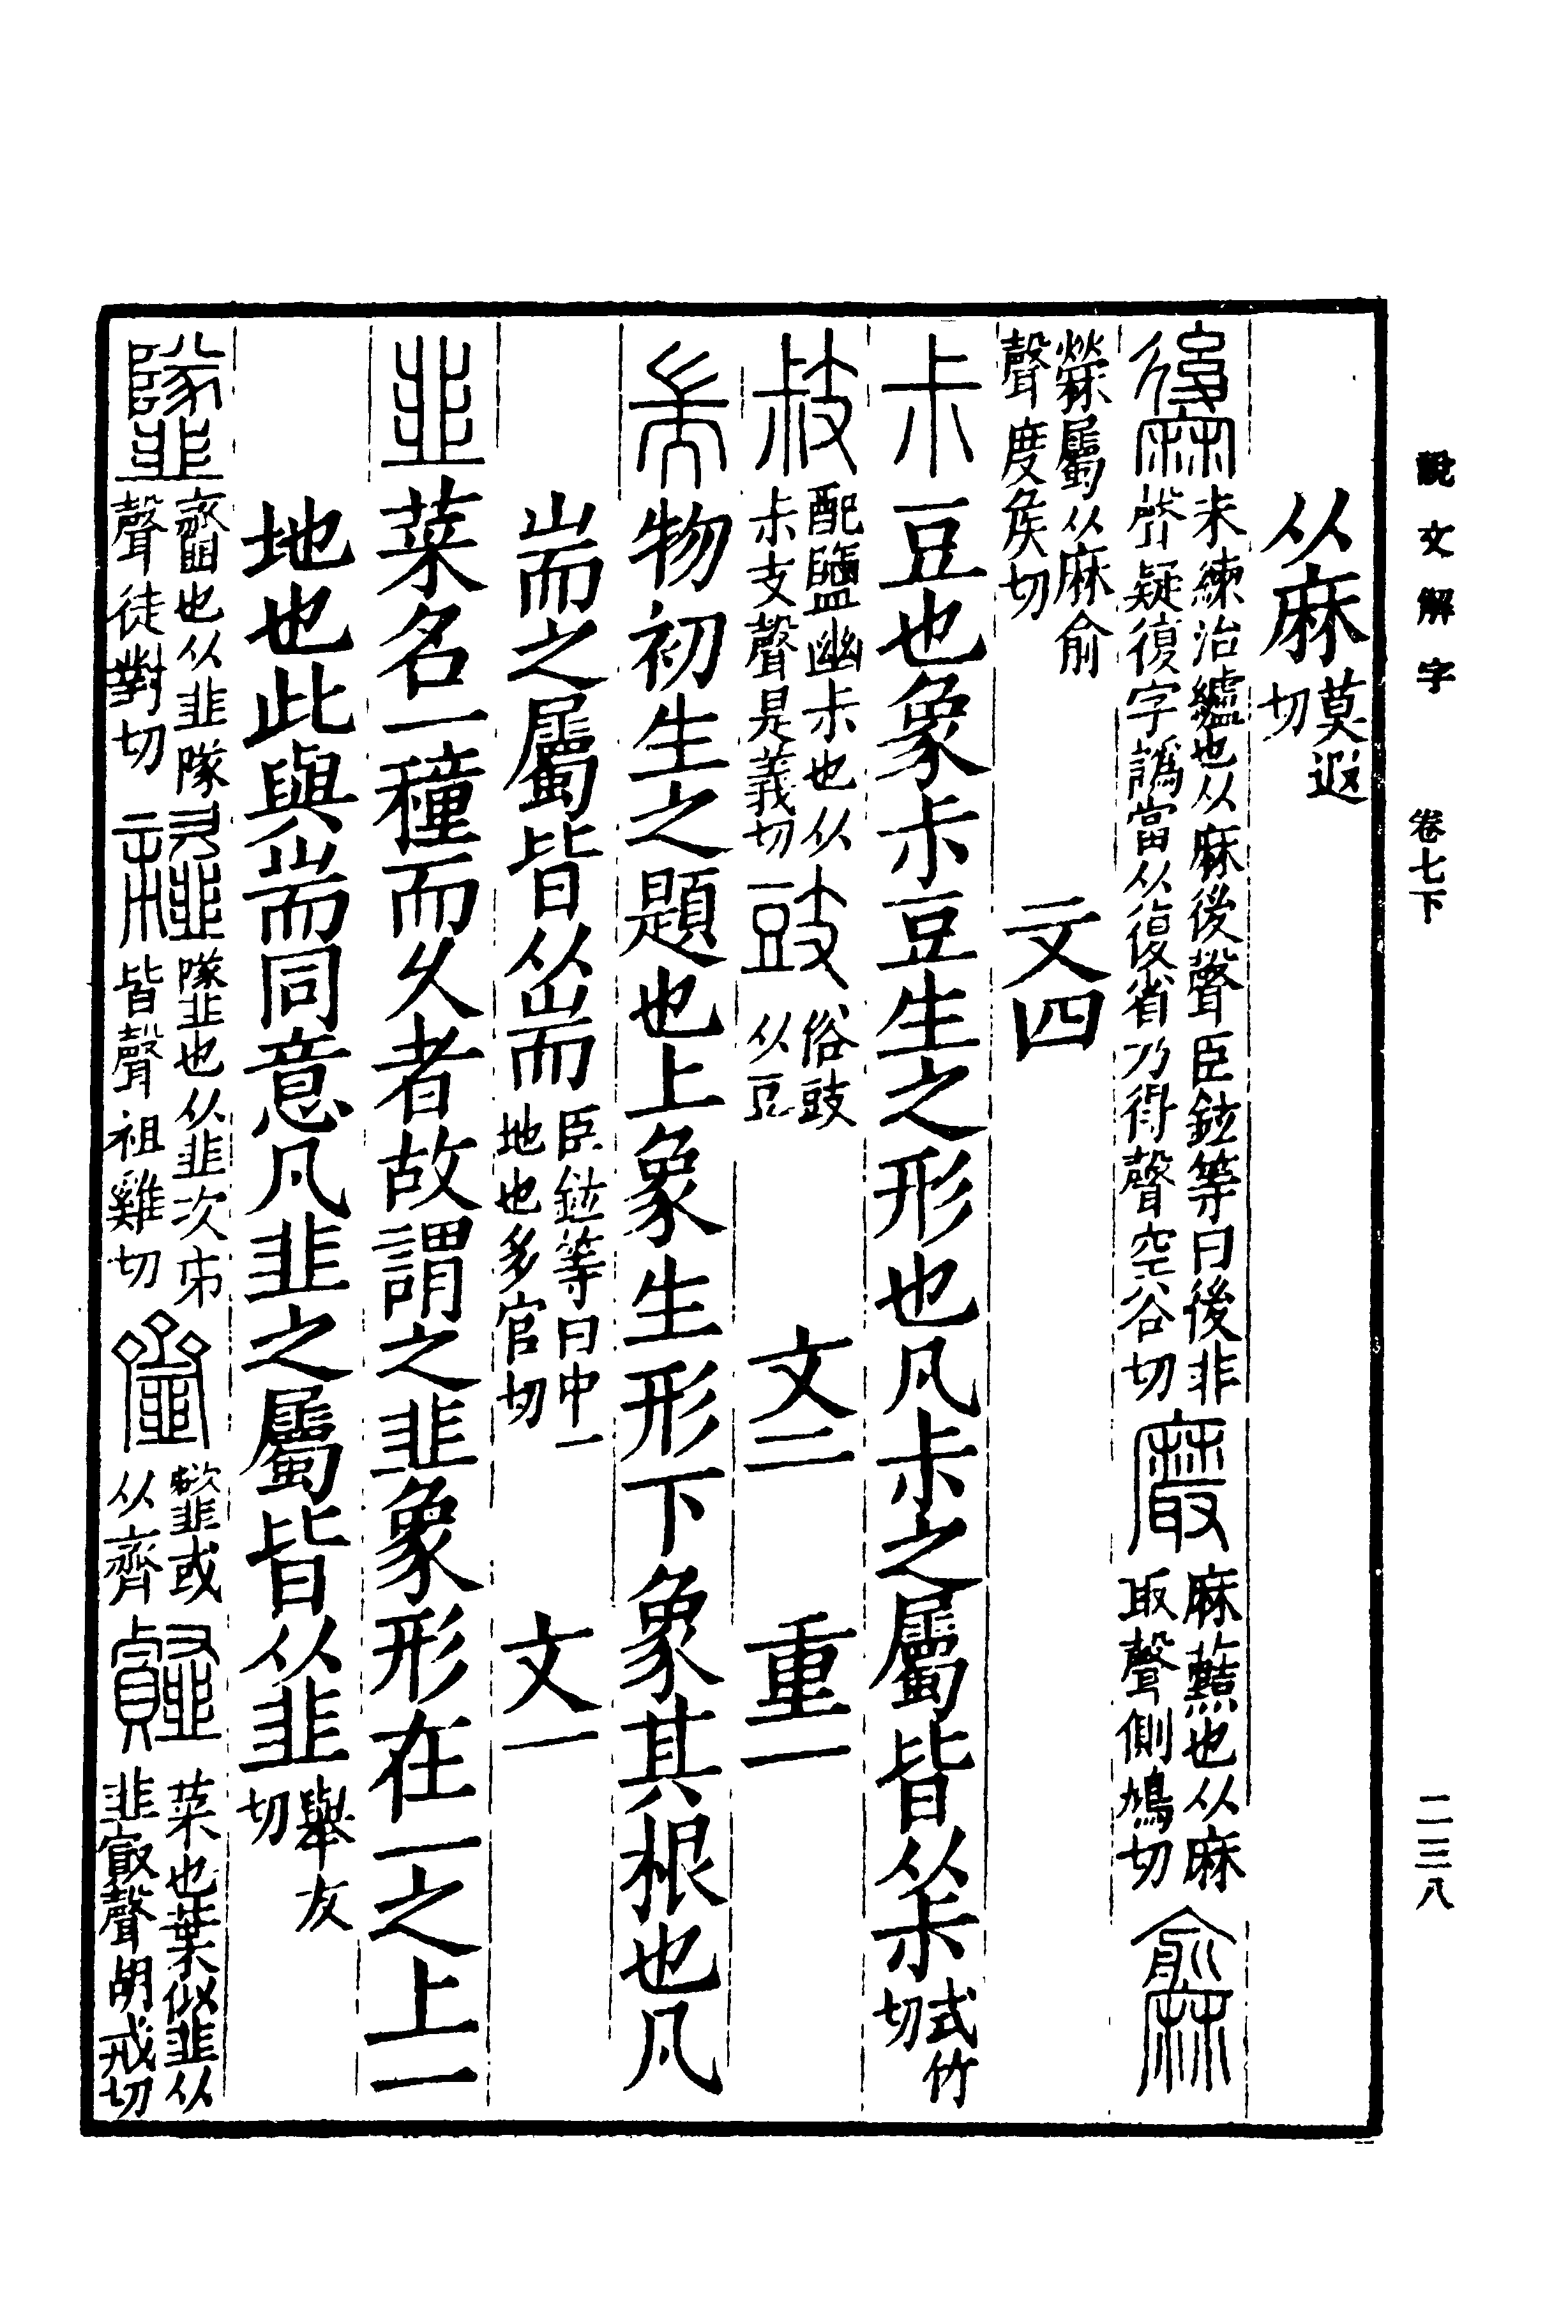 說文解字 卷七下 二三八
从麻莫遐切
𪎕未練治纑也从麻後聲臣鉉等曰後非聲疑復字譌當从復省乃得聲空谷切 𪎮麻藍也从麻取聲側鳩切 𪎭
檾屬从麻俞聲度矦切 文四
尗豆也象尗豆生之形也凡尗之屬皆从尗式竹切
𢻃配鹽幽尗也从尗支聲是義切 豉俗𢻃从豆 文二 重一
耑物初生之題也上象生形下象其根也凡
耑之屬皆从耑臣鉉等曰中一地也多官切 文一
韭菜名一穜而久者故謂之韭象形在一之上一
地也此與耑同意凡韭之屬皆从韭舉友切
䪤𩐋也从韭隊聲徒對切 𩐎䪤也从韭次𠂔皆聲祖雞切 𩐏𩐎或从齊 䪥菜也葉似韭从韭㕡聲胡戒切